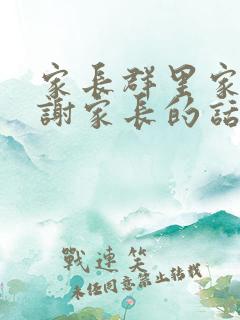 家長群里家
謝家長的話
戰連笑
未经同意禁止转载